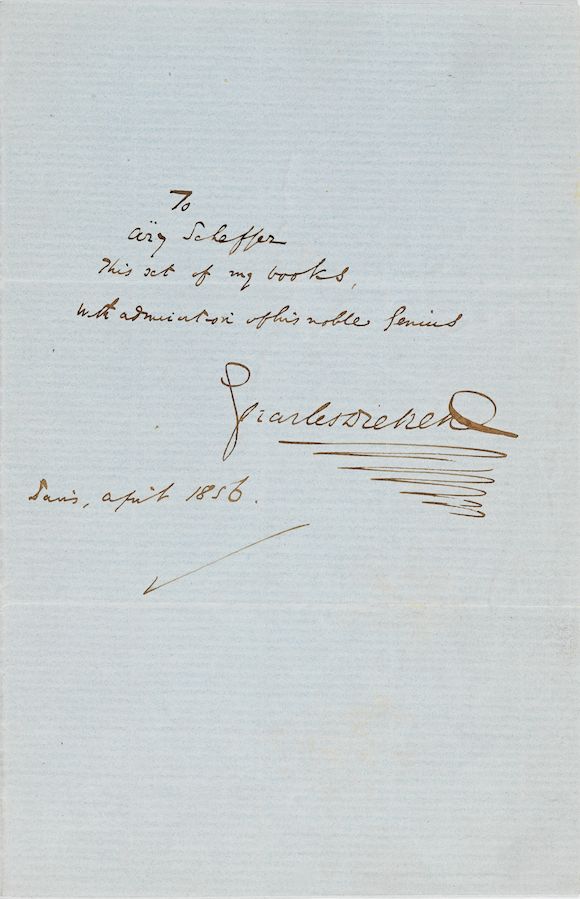 To
Ary Scheffer
This set of my books,
with admiration of his noble Genius
Charles Dickens
Paris, April 1856.